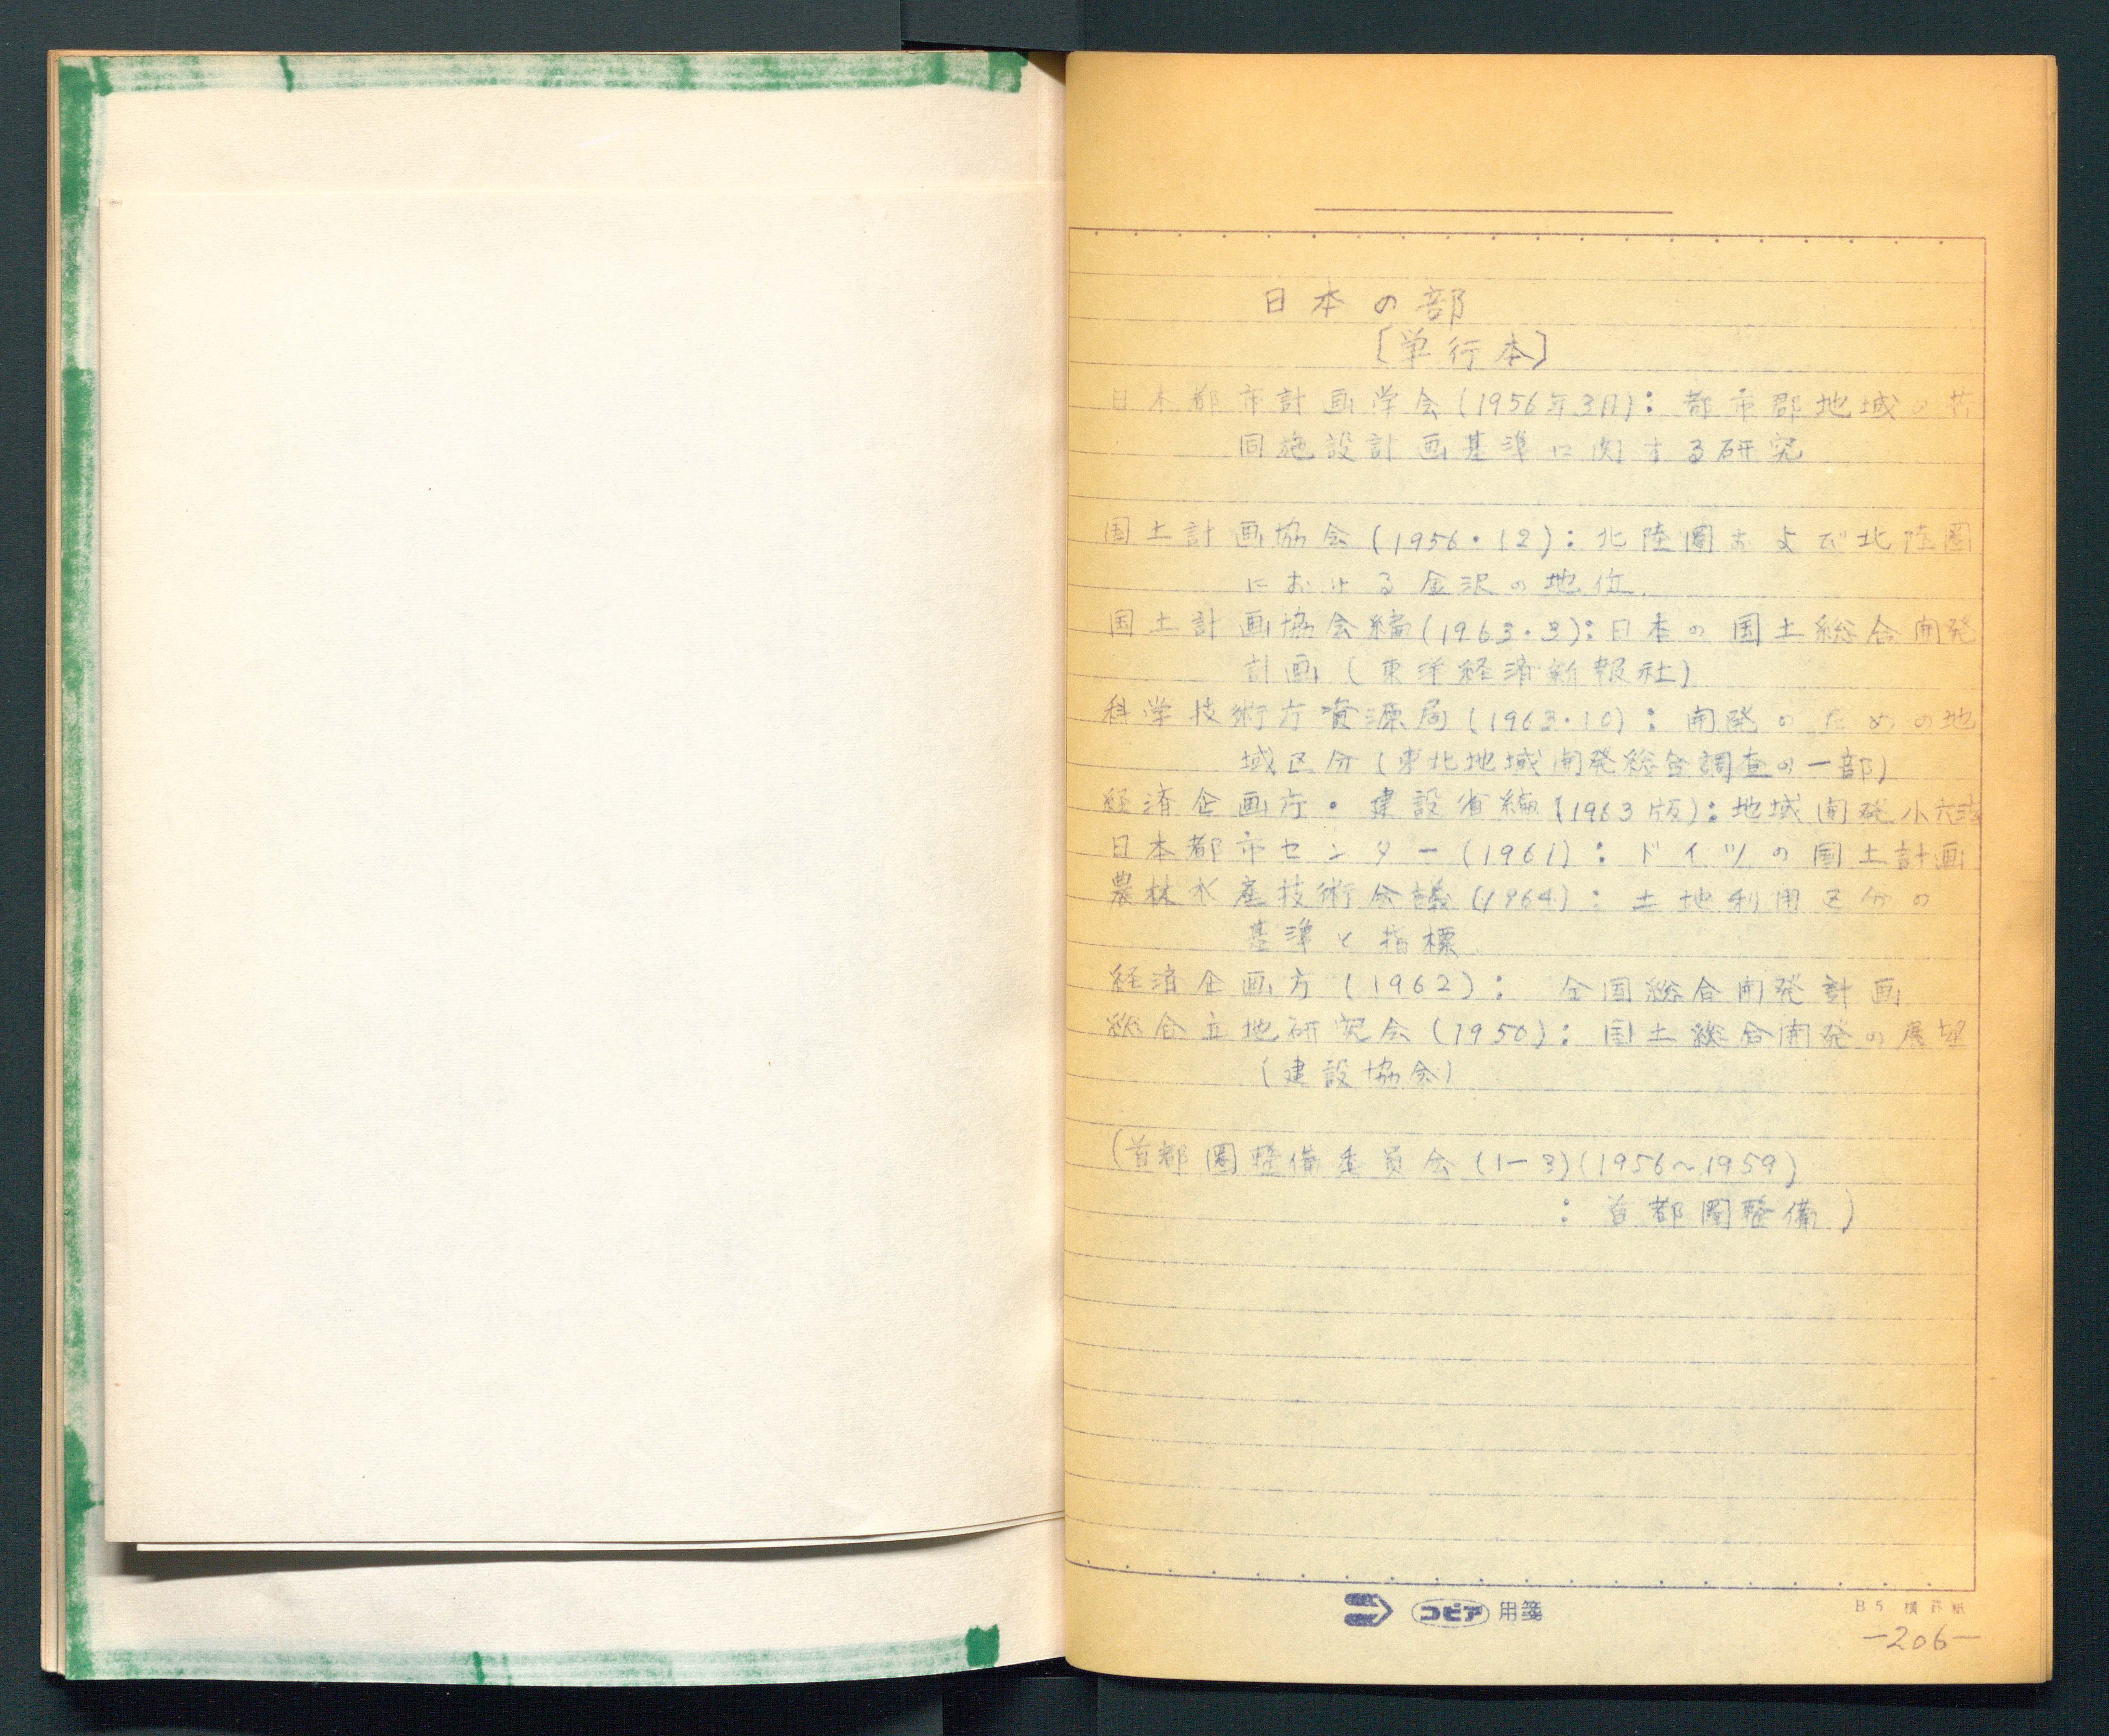 日本の部
〔単行本〕
日本都市計画学会(1956年3月):都市郡地域の共
同施設計画基準に関する研究
国土計画協会(1956・12):北陸圏および北陸圏
における金沢の地位.
国土計画協会編(1963・3):日本の国土総合開発
計画(東洋経済新報社)
科学技術庁資源局(1963・10):開発のための地
域区分(東北地域開発総合調査の一部)
経済企画庁・建設省編(1963版):地域開発小六法
日本都市センター(1961):ドイツの国土計画
農林水産技術会議(1964):土地利用区分の
基準と指標.
経済企画庁(1962): 全国総合開発計画
総合立地研究会(1950):国土総合開発の展望
(建設協会)
(首都圏整備委員会(1-3)(1956~1959)
:首都圏整備)
コピア用箋
B5 横罫紙
-206-